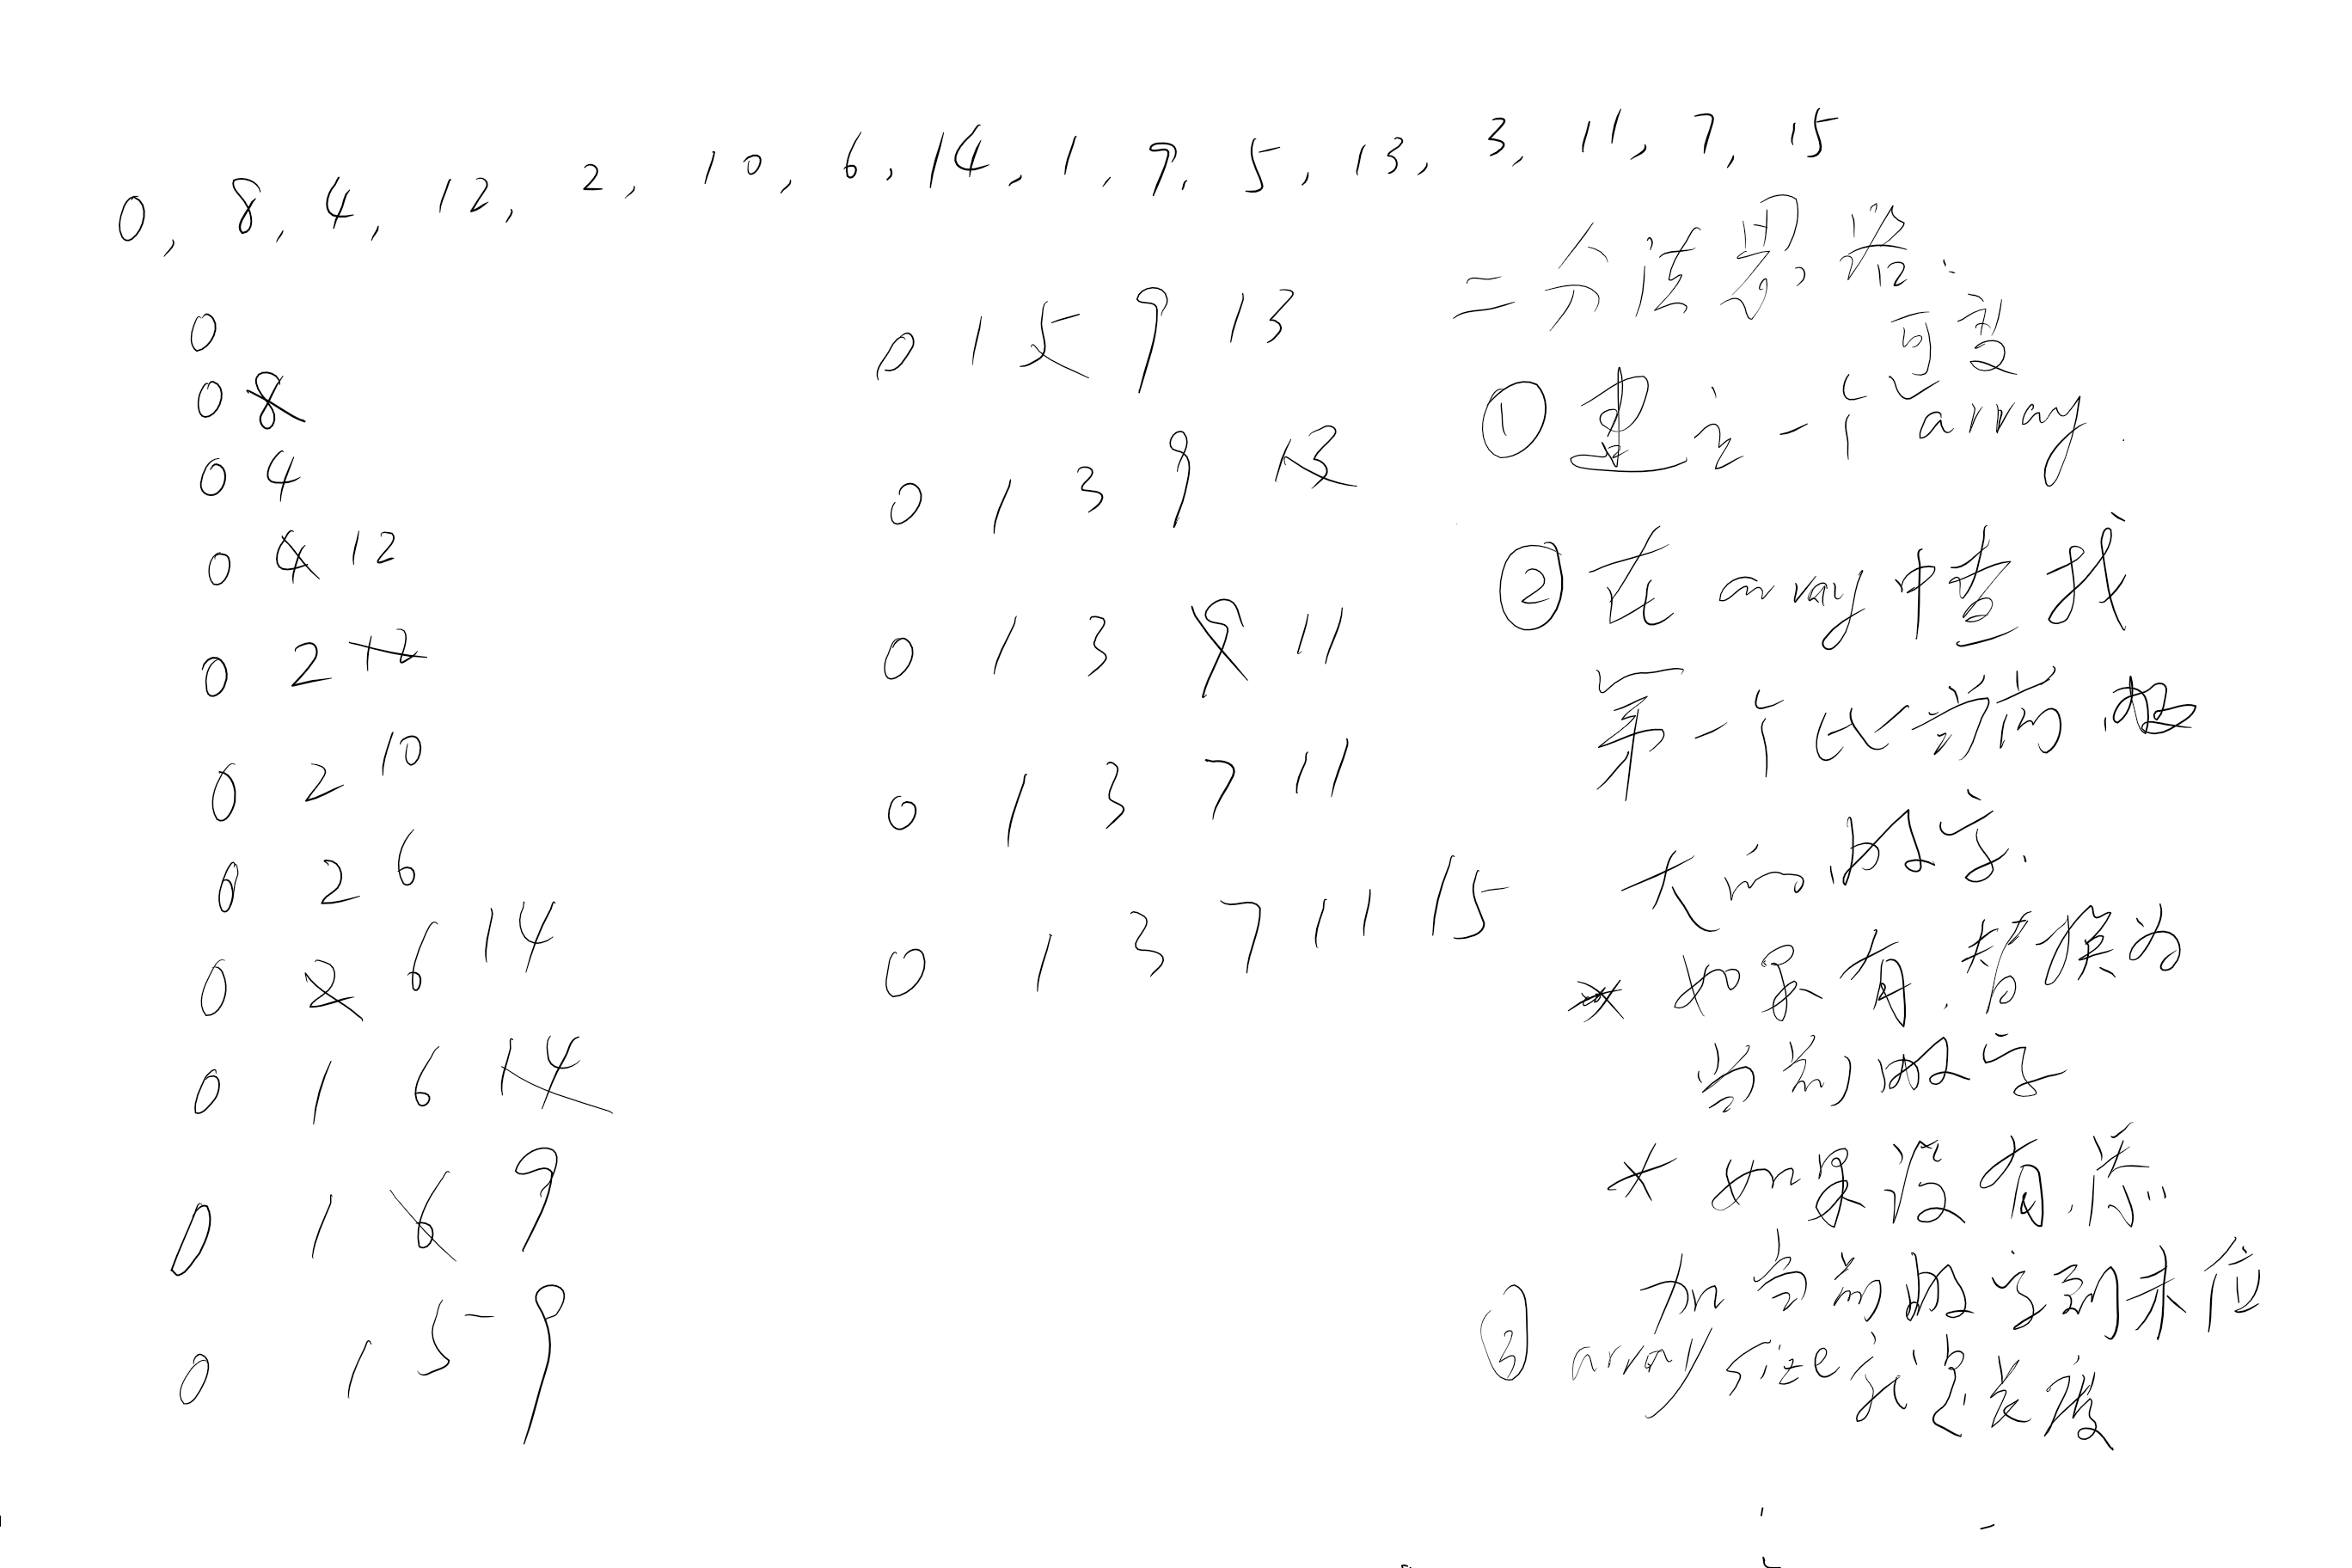 0, 8, 4, 12, 2, 10, 6, 14, 1, 9, 5, 13, 3, 11, 7, 15
0
0 8
0 4
0 4 12
0 2 12
0 2 10
0 2 6
0 2 6 14
0 1 6 14
0 1 6 9
0 1 5 9
0 1 5 9 13
0 1 3 9 13
0 1 3 9 11
0 1 3 7 11
0 1 3 7 11 15
二分法思路:
可变
① 建立一个 array.
② 在 array 中查找
第一个比当前
大的数字.
* 如果有, 替换为
当前数字
* 如果没有, 添
加当前数字到末位
③ array size 就是长度